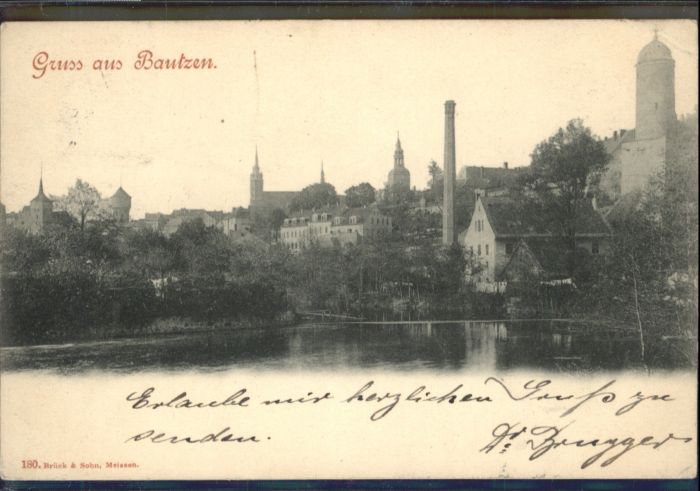 Gruss aus Bautzen.
Erlaube mir herzlichen Gruß zu
senden.
Dr Brugger
180. Brück & Sohn, Meissen.